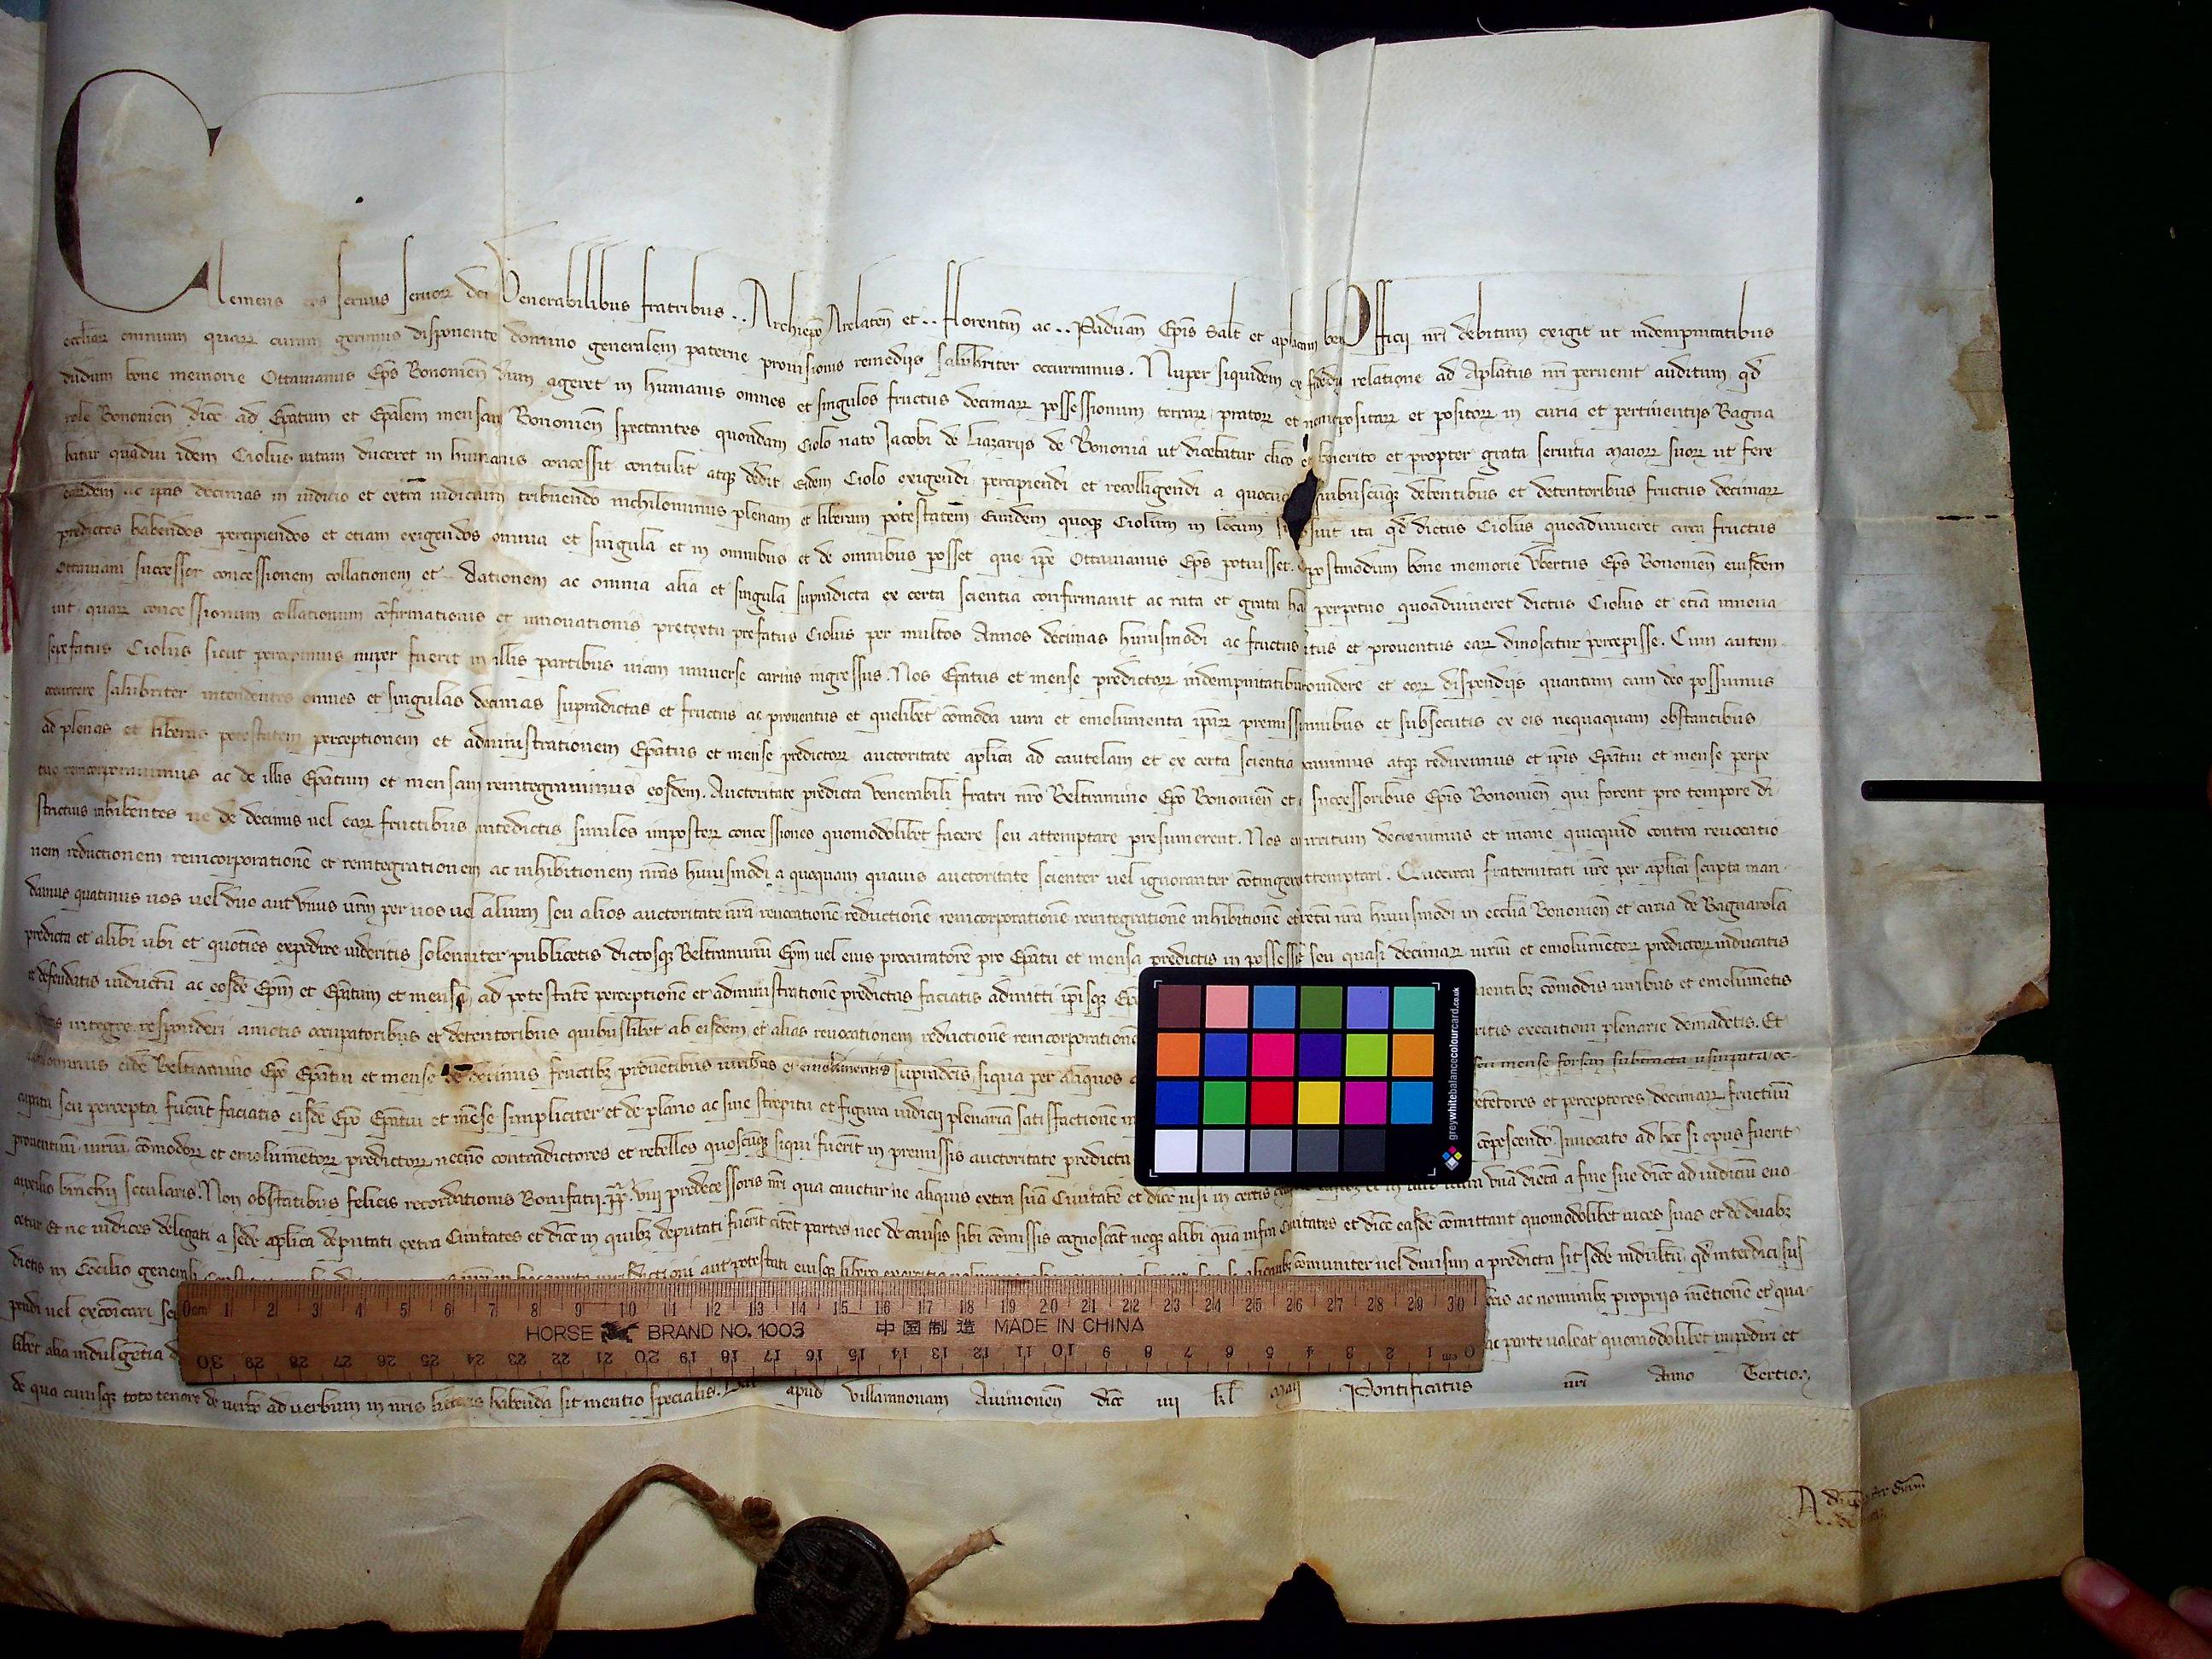 Clemens eps seruus seruoꝝ dei Venerabilibus fratribus .. Archiepo Arelaten̄ et .. Florentin̄ ac .. Paduan̄ Epis Salt et aplicam ben Officij nr̄i debitum exigit ut indempnitatibus
ecclīaꝝ omnium quaꝝ curam gerimus disponente domino generalem paterne prouisionis remedijs salubriter occurramus. Nuper siquidem ex relatione ad Aplatus nr̄i peruenit auditum qd̄
dudum bone memorie Ottauianus Ep̄s Bononien̄ dum ageret in humanis omnes et singulos fructus decimaꝝ possessionum terraꝝ pratoꝝ et positaꝝ et positoꝝ in curia et pertinentijs Bagna
role Bononien̄ dioc̄ ad Ep̄atum et Ep̄alem mensam Bononien̄ spectantes quondam Ciolo nato Jacobi de Liazarijs de Bononia ut dicebatur clico merito et propter grata seruitia maioꝝ suoꝝ ut fere
batur quādiu idem Ciolus uitam duceret in humanis concessit contulit atqꝫ dedit eidem Ciolo exigendi percipiendi et recolligendi a quibuscūqꝫ debentibus et detentoribus fructus decimaꝝ
earūdem ac ipās decimas in iudicio et extra iudicium tribuendo nichilominus plenam et liberam potestatem Eundem quoqꝫ Ciolum in locum ita qd̄ dictus Ciolus quoaduiueret circa fructus
predictos habendos percipiendos et etiam exigendos omnia et singula et in omnibus et de omnibus posset que ip̄e Ottauianus Ep̄s potuisset. postmodum bone memorie Vbertus Ep̄s Bononien̄ eiusdem
Ottauiani successor concessionem collationem et dationem ac omnia alia et singula supradicta ex certa scientia confirmauit ac rata et grata ha perpetuo quoaduiueret dictus Ciolus et etiā innoua
uit. quaꝝ concessionum collationum cōfirmationis et innouationis pretextu prefatus Ciolus per multos Annos decimas huiusmodi ac fructus itus et prouentus eaꝝ dinoscitur percepisse. Cum autem
sepefatus Ciolus sicut percepimus nuper fuerit in illis partibus uiam uniuerse carnis ingressus. Nos Ep̄atus et mense predictoꝝ indempnitatibus rouidere et eoꝝ dispendijs quantum cum deo possumus
occurrere salubriter intendentes omnes et singulas decimas supradictas et fructus ac prouentus et quelibet cōmoda iura et emolumenta ipaꝝ premiss omnibus et subsecutis ex eis nequaquam obstantibus
ad plenas et liberas potestatem perceptionem et administrationem Ep̄atus et mense predictoꝝ auctoritate aplica ad cautelam et ex certa scientia ocauimus atqꝫ reduximus et ipīs Ep̄atui et mense perpe
tuo reincorporauimus ac de illis Ep̄atum et mensam reintegrauimus eosdem. Auctoritate predicta Venerabili fratri nr̄o Beltramino Ep̄o Bononien̄ et successoribus Epīs Bononien̄ qui forent pro tempore di
strictius inhibentes ne de decimis uel eaꝝ fructibus antedictis similes imposteꝝ concessiones quomodolibet facere seu attemptare presumerent. Nos irritum decreuimus et inane quicquid contra reuocatio
nem reductionem reincorporationē et reintegrationem ac inhibitionem nr̄as huiusmodi a quoquam quauis auctoritate scienter uel ignoranter cōtingeret attemptari. Quocirca fraternitati ur̄e per aplica scripta man-
damus quatinus uos uel duo aut Vnus ur̄m per uos uel alium seu alios auctoritate nr̄a reuocationē reductionē reincorporationē reintegrationē inhibitionē et decretū nr̄a huiusmodi in ecclia Bononien̄ et curia de Bagnarola
predicta et alibi ubi et quotiēs expedire uideritis solemniter publicetis dictosqꝫ Beltraminū Ep̄m uel eius procuratorē pro Ep̄atu et mensa predictis in possessiō seu quasi decimaꝝ iuriū et emolumētoꝝ predictoꝝ inducatis
et defendatis inductū ac eosdē Ep̄m et Ep̄atum et mensā ad potestatē perceptionē et administrationē predictas faciatis admitti ipīsqꝫ uentibꝫ cōmodis iuribus et emolumētis
integre responderi amotis occupatoribus et detentoribus quibuslibet ab eisdem et alias reuocationem reductionē reincorporationē ritis executioni plenarie demādetis. Et
nichilominus eidē Beltramino Ep̄o Ep̄atui et mense de decimis fructibꝫ prouētibus iuribus et emolumentis supradcīs siqua per aliquos seu mense forsan subtracta usurpata oc-
cupata seu percepta fuerīt faciatis eisdē Ep̄o Ep̄atui et mēse simpliciter et de plano ac sine strepitu et figura iudicij plenariā satisfactionē detētores et perceptores decimaꝝ fructuū
prouentuū iuriū cōmodoꝝ et emolumētoꝝ predictoꝝ necnō contradictores et rebelles quoscūqꝫ siqui fuerīt in premissis auctoritate predicta cōpescendo. Inuocato ad hoc si opus fuerit
auxilio brachij secularis. Non obstātibus felicis recordationis Bonifatij pp̄ viij predecessoris nr̄i qua cauetur ne aliquis extra suā Ciuitatē et dioc̄ nisi in certis Vnā dietā a fine sue dioc̄ ad iudiciū euo-
cetur Et ne iudices delegati a sede aplica deputati extra Ciuitates et dioc̄ in quibꝫ deputati fuerīt citēt partes nec de causis sibi cōmissis cognoscāt neqꝫ alibi quā infra Ciuitates et dioc̄ easdē cōmittant quomodolibet uices suas et de duabꝫ
dietis in Cōcilio generali iurisdictioni aut potestati eiusqꝫ libero cōmuniter uel diuisim a predicta sit sede indultū qd̄ interdici sus
pendi uel excōicari ac nominibꝫ proprijs mētionē et qua-
libet alia indulgētia parte ualeat quomodolibet impediri et
de qua cuiusqꝫ toto tenore de uerbo ad uerbum in nr̄is litteris habenda sit mentio specialis. Dat apud Villamnouam Auinionen̄ dioc̄ iiij kl̄ Maij Pontificatus nr̄i Anno Tertio.
0cm 1 2 3 4 5 6 7 8 9 10 11 12 13 14 15 16 17 18 19 20 21 22 23 24 25 26 27 28 29 30
HORSE BRAND NO. 1003 中国制造 MADE IN CHINA
30 29 28 27 26 25 24 23 22 21 20 19 18 17 16 15 14 13 12 11 10 9 8 7 6 5 4 3 2 1 cm 0
greywhitebalancecolourcard.co.uk